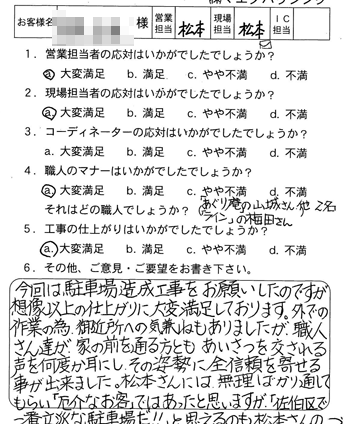 お客様名 様 営業担当 松本 現場担当 松本 IC担当
1．営業担当者の応対はいかがでしたでしょうか？
a. 大変満足 b. 満足 c. やや不満 d. 不満
2．現場担当者の応対はいかがでしたでしょうか？
a. 大変満足 b. 満足 c. やや不満 d. 不満
3．コーディネーターの応対はいかがでしたでしょうか？
a. 大変満足 b. 満足 c. やや不満 d. 不満
4．職人のマナーはいかがでしたでしょうか？
a. 大変満足 b. 満足 c. やや不満 d. 不満
それはどの職人でしょうか？ の山城さん他2名
ライン」の梅田さん
5．工事の仕上がりはいかがでしたでしょうか？
a. 大変満足 b. 満足 c. やや不満 d. 不満
6．その他、ご意見・ご要望をお書き下さい。
今回は駐車場造成工事をお願いしたのですが
想像以上の仕上がりに大変満足しております。外での
作業の為、御近所への気兼ねもありましたが、職人
さん達が家の前を通る方とも あいさつを交される
声を何度か耳にし、その姿勢に全信頼を寄せる
事が出来ました。松本さんには、無理ばかり通して
もらい「厄介なお客」ではあったと思いますが、「佐伯区で
一番立派な駐車場だ!!」と思えるのも松本さんの